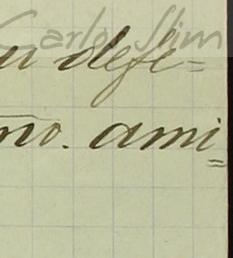 Carlos Slim
su defe=
mo. ami=